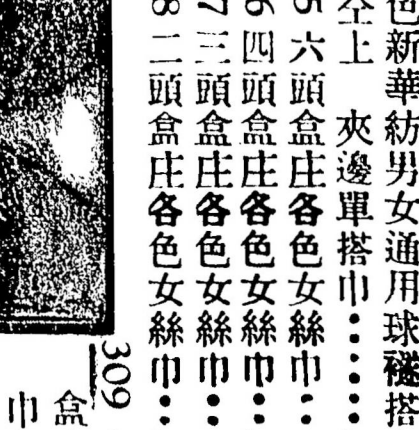 色新華紡男女通用球襚搭
仝上　夾邊單搭巾••••
5 六頭盒庄各色女絲巾•••
6 四頭盒庄各色女絲巾••
7 三頭盒庄各色女絲巾••
8 二頭盒庄各色女絲巾••
309
盒
巾